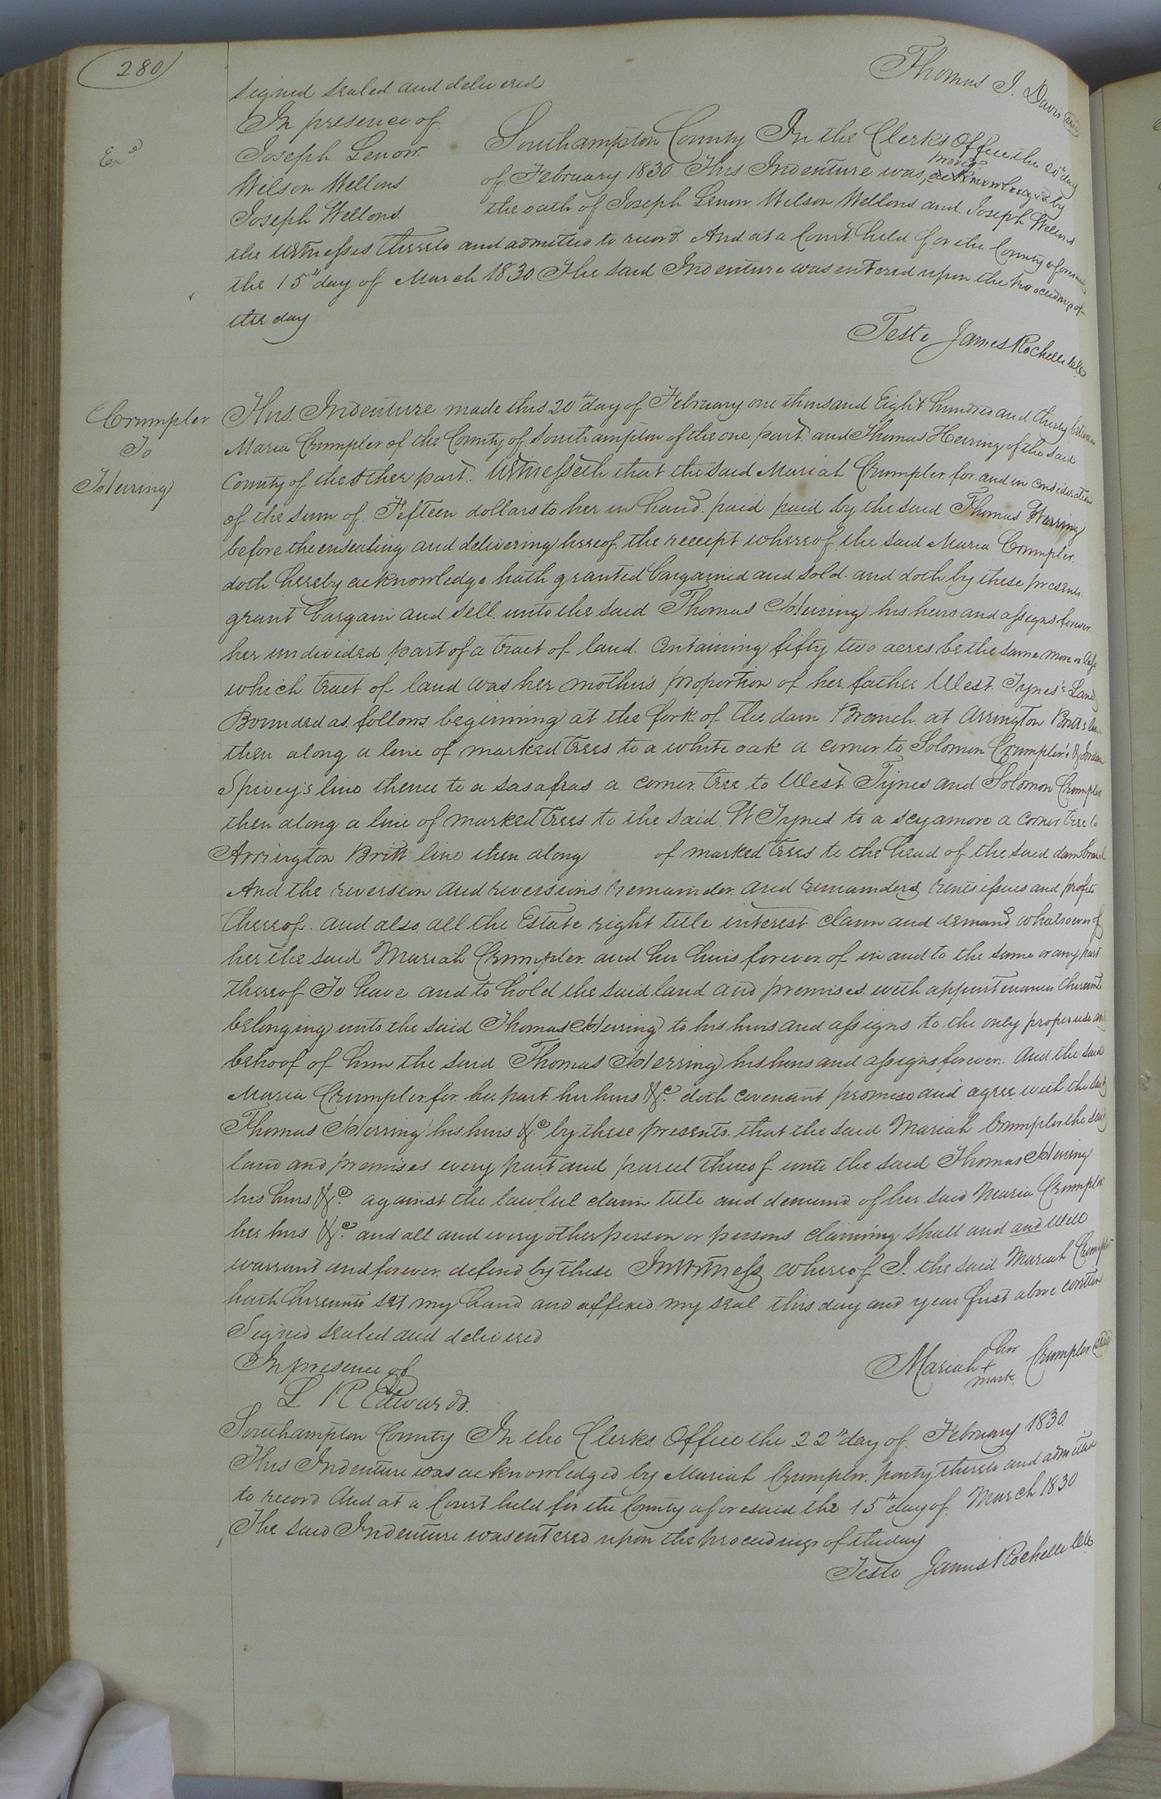 280
signed sealed and delivered
Thomas J. Davis (seal)
In presence of
Exd
Joseph Lenow
Wilson Wellons
Joseph Wellons
Southampton County In the Clerks Office the day
of February 1830 This Indenture was proved acknowledged by
the oath of Joseph Lenow Wilson Wellons and Joseph Wellons
the witnesses thereto and admitted to record. And at a Court held for the County aforesaid
the 15th day of March 1830. The said Indenture was entered upon the proceedings of
the day
Teste James Rochelle Clk
Crumpler
To
Herring
This Indenture made this 20th day of February one thousand Eight hundred and thirty between
Maria Crumpler of the County of Southampton of the one part. and Thomas Herring of the said
County of the other part. Witnesseth that the said Mariah Crumpler for and in consideration
of the sum of Fifteen dollars to her in hand paid paid by the said Thomas Herring
before the ensealing and delivering hereof the receipt whereof the said Maria Crumpler
doth hereby acknowledge hath granted bargained and sold and doth by these presents
grant bargain and sell unto the said Thomas Herring his heirs and assigns forever
her undivided part of a tract of land. Containing fifty two acres be the same more or less
which tract of land was her mothers proportion of her father West Tynes's Land
Bounded as follows beginning at the fork of the dam Branch at Arrington Britts line
then along a line of marked trees to a white oak a corner to Solomon Crumpler's &
Spivey's line thence to a sasafras a corner tree to West Tynes and Solomon Crumpler
then along a line of marked trees to the said W Tynes to a scyamore a corner tree to
Arrington Britt line then along of marked trees to the head of the said dam branch
And the reversion and reversions remainder and remainders, rents issues and profits
thereof. and also all the Estate right title interest claim and demand whatsoever of
her the said Mariah Crumpler and her heirs forever of in and to the same or any part
thereof To have and to hold the said land and premises with appurtenances thereunto
belonging unto the said Thomas Herring to his heirs and assigns to the only proper use and
behoof of him the said Thomas Herring his heirs and assigns forever. And the said
Maria Crumpler for her part her heirs &c doth covenant promise and agree with the said
Thomas Herring his heirs &c by these presents that the said Mariah Crumpler the said
land and premises every part and parcel thereof unto the said Thomas Herring
his heirs &c against the lawful claim title and demand of her said Maria Crumpler
her heirs &c and all and every other person or persons claiming shall and and will
warrant and forever defend by these In Witness whereof I the said Mariah Crumpler
hath hereunto set my hand and affixed my seal this day and year first above written
Signed sealed and delivered
In presence of
L R Edwards.
her
Mariah + Crumpler (seal)
mark
Southampton County In the Clerks Office the 22nd day of February 1830
This Indenture was acknowledged by Mariah Crumpler party thereto and admitted
to record And at a Court held for the County aforesaid the 15th day of March 1830
The said Indenture was entered upon the proceedings of the day
Teste James Rochelle Clk